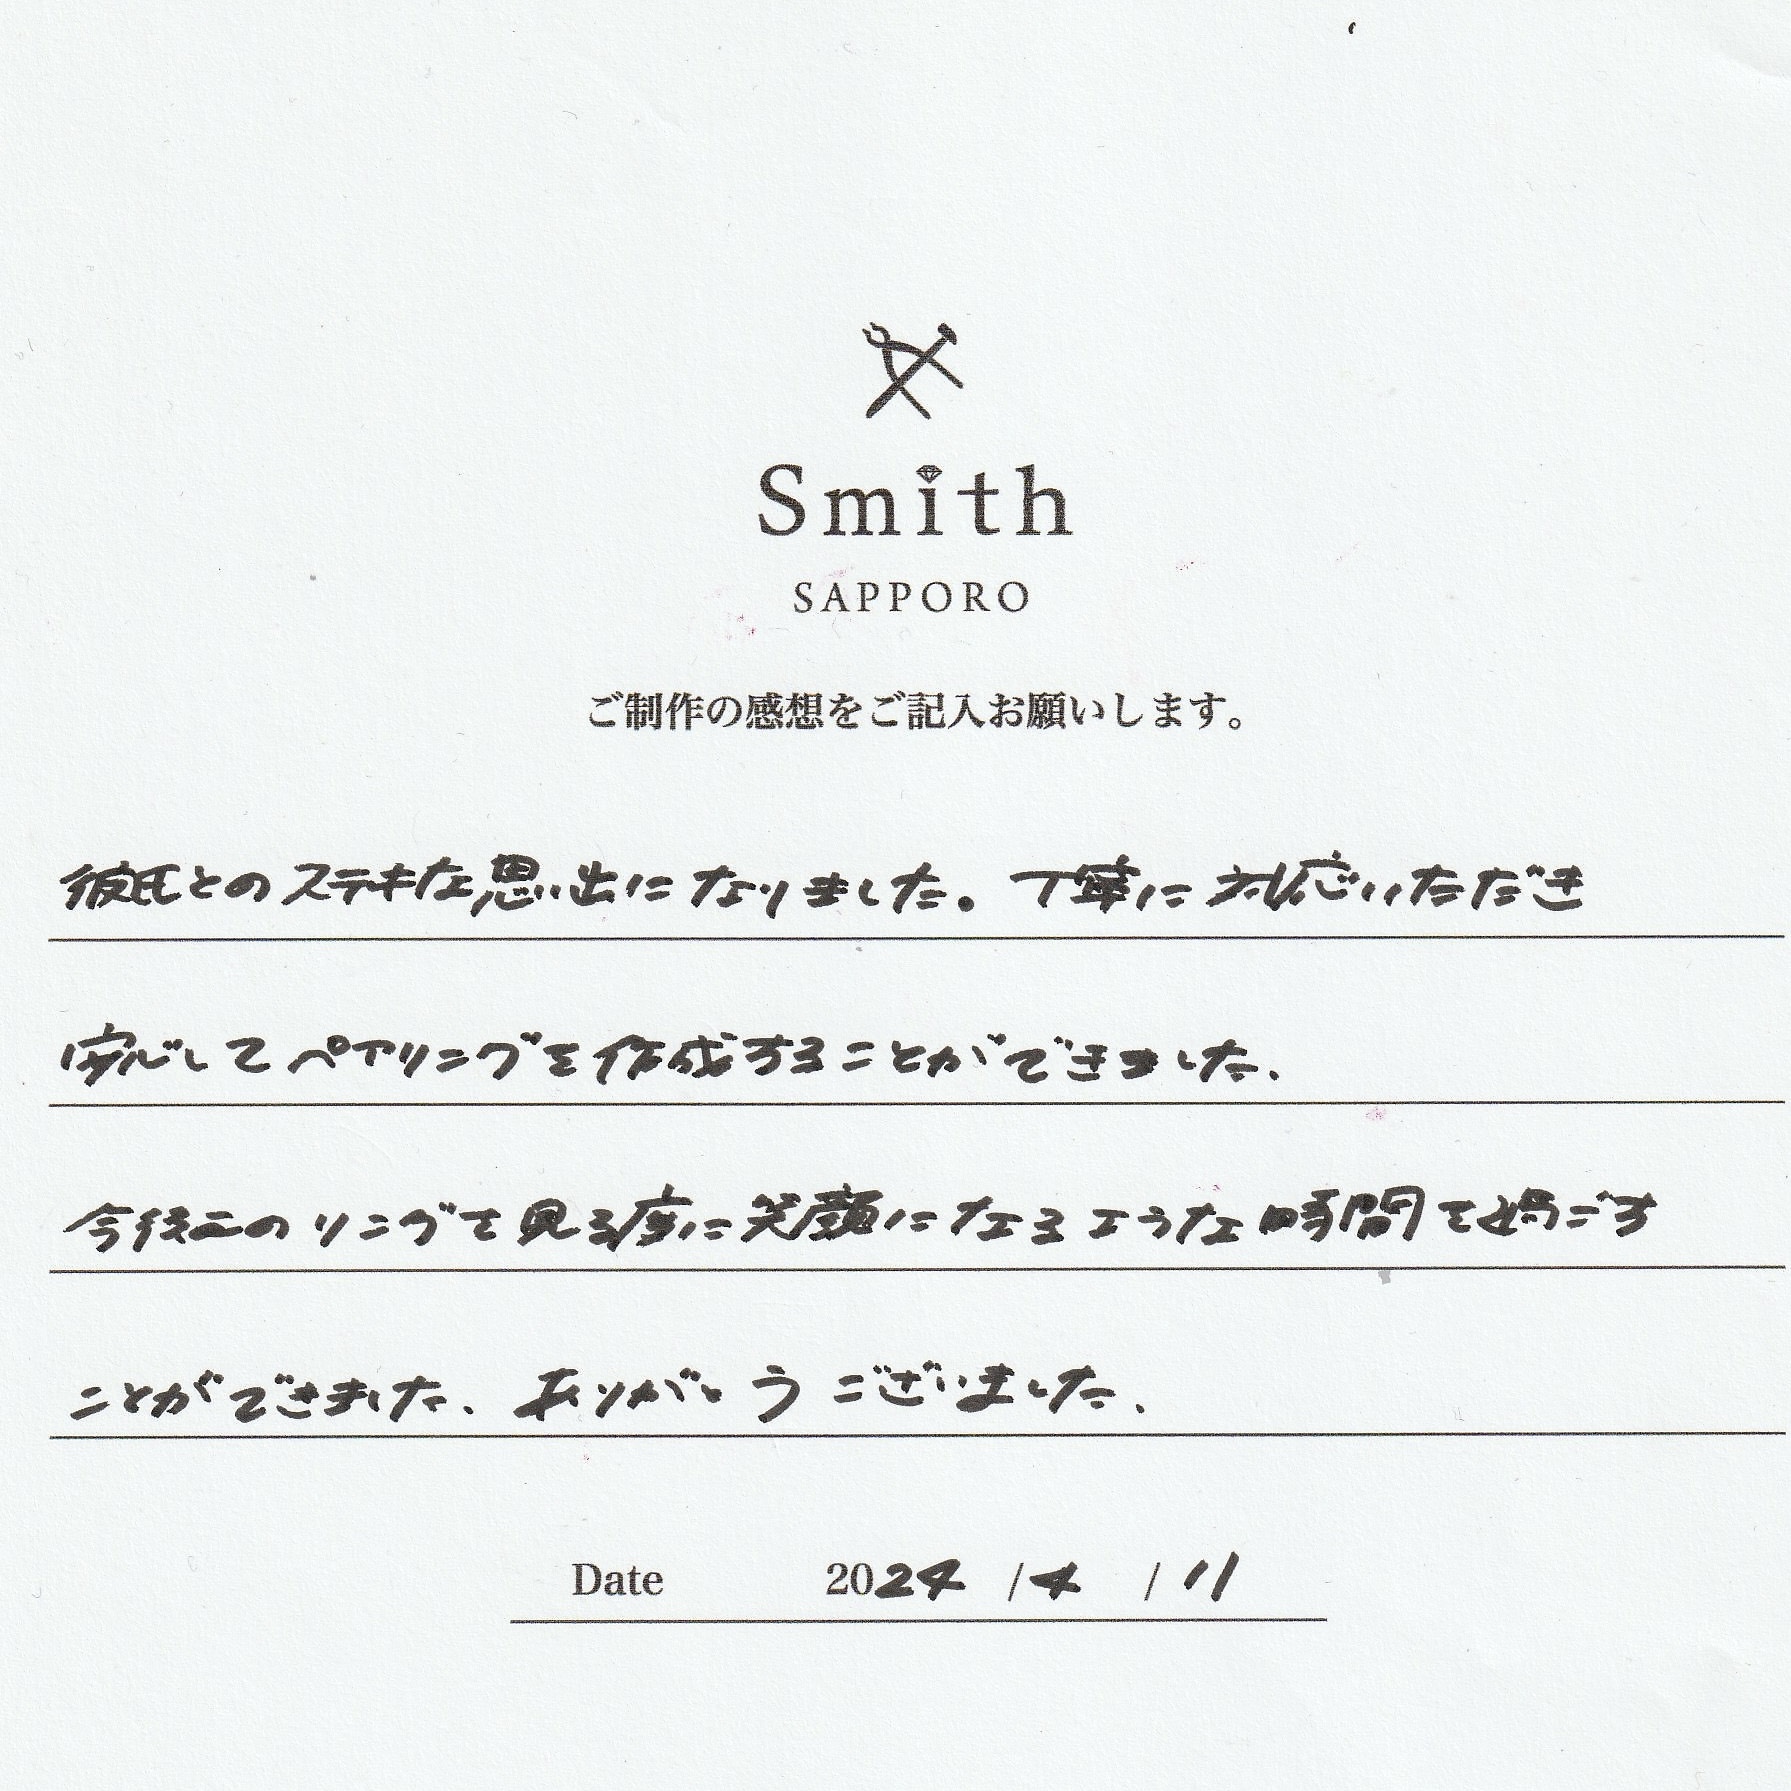 Smith
SAPPORO
ご制作の感想をご記入お願いします。
彼氏とのステキな思い出になりました。丁寧に対応いただき
安心してペアリングを作成することができました.
今後このリングを見る度に笑顔になるような時間を過ごす
ことができました. ありがとうございました.
Date 2024 /4 /11